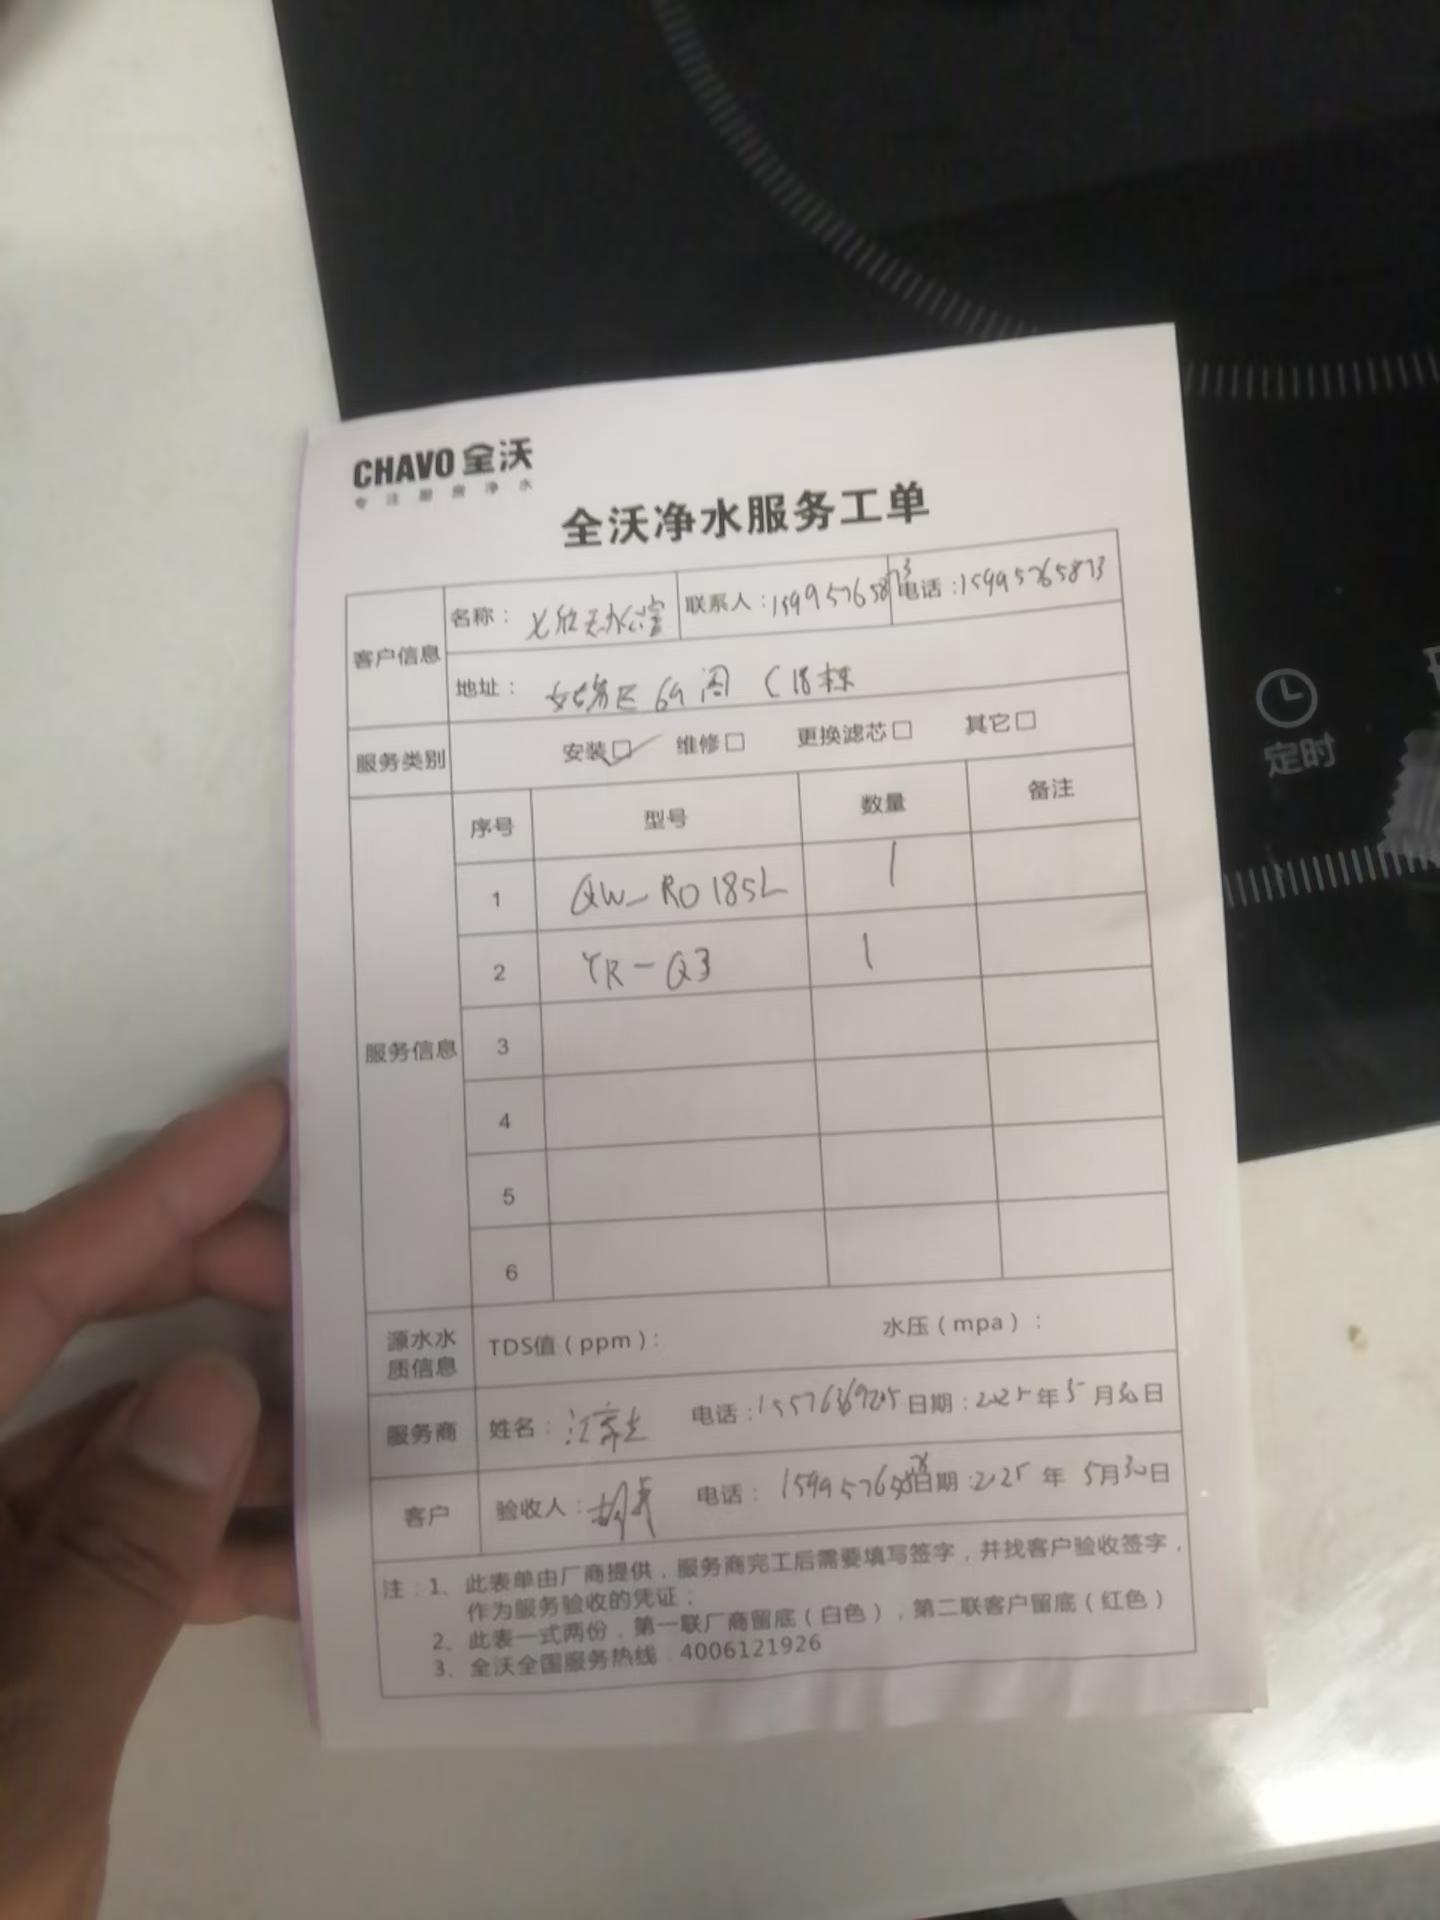 CHAVO 全沃
专注厨房净水
全沃净水服务工单
客户信息
名称： 办公室 联系人：15995765873 电话：15995765873
地址： C18栋
服务类别 安装☑ 维修□ 更换滤芯□ 其它□
服务信息
序号 型号 数量 备注
1 QW-RO185L 1
2 YR-Q3 1
3
4
5
6
源水水质信息 TDS值（ppm）： 水压（mpa）：
服务商 姓名： 电话： 日期：2025年5月30日
客户 验收人： 电话： 日期：2025年5月30日
注：1、此表单由厂商提供，服务商完工后需要填写签字，并找客户验收签字，
作为服务验收的凭证；
2、此表一式两份，第一联厂商留底（白色），第二联客户留底（红色）
3、全沃全国服务热线：4006121926
定时